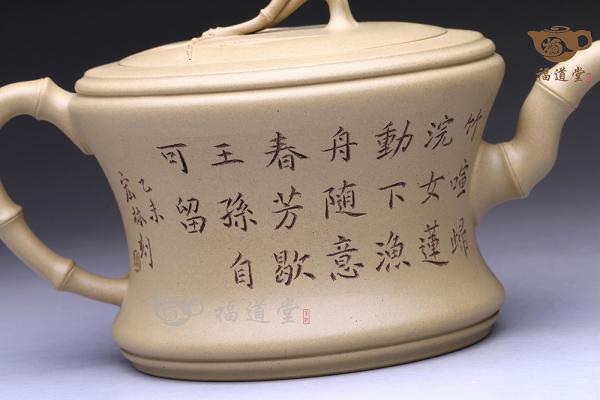 竹喧歸
浣女蓮
動下漁
舟隨意
春芳歇
王孫自
可留
乙未
宏林刻
福道堂
福道堂